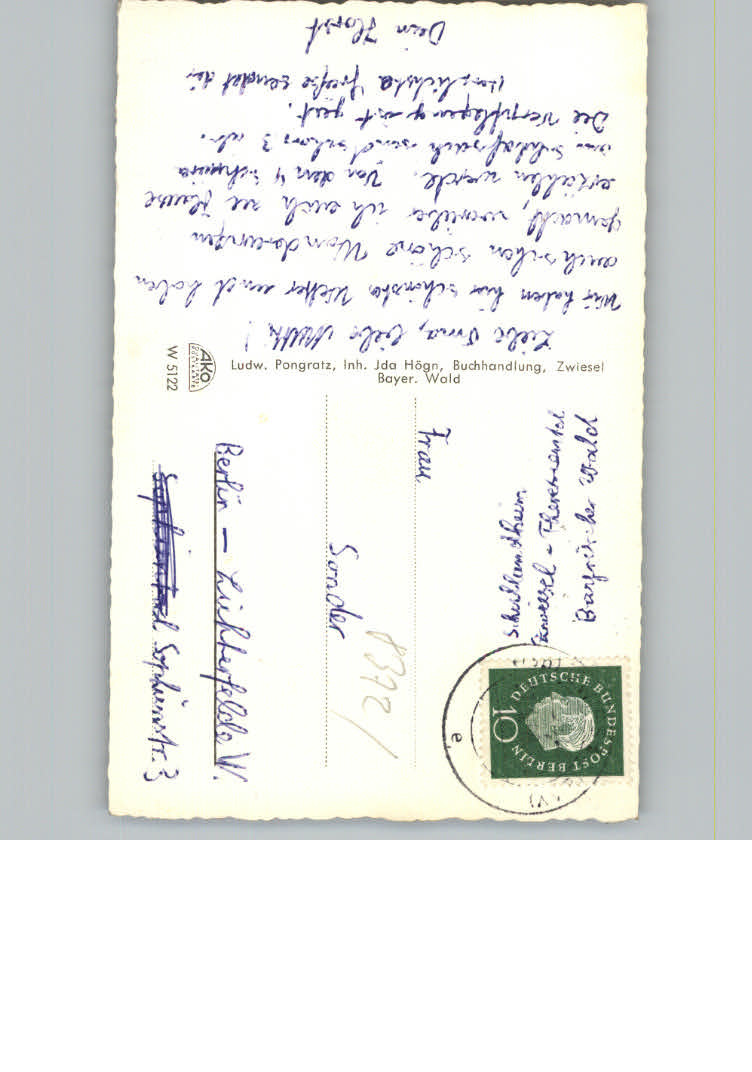 Liebe Oma, liebe Mutti!
Wir haben hier schönstes Wetter und haben
auch schon schöne Wanderungen
gemacht, worüber ich euch zu Hause
erzählen werde. Von den 4
im Schlafsack sind schon 3 ab.
Die Verpflegung ist gut.
Herzlichste Grüße sendet dir
Dein Horst
Ludw. Pongratz, Inh. Jda Högn, Buchhandlung, Zwiesel
Bayer. Wald
AKO
W 5122
Schullandheim
Zwiesel - Theresienthal
Bayrischer Wald
DEUTSCHE BUNDESPOST BERLIN
10
e
Frau
Sander
Berlin - Lichterfelde W.
Sophienstr. 3
8372/